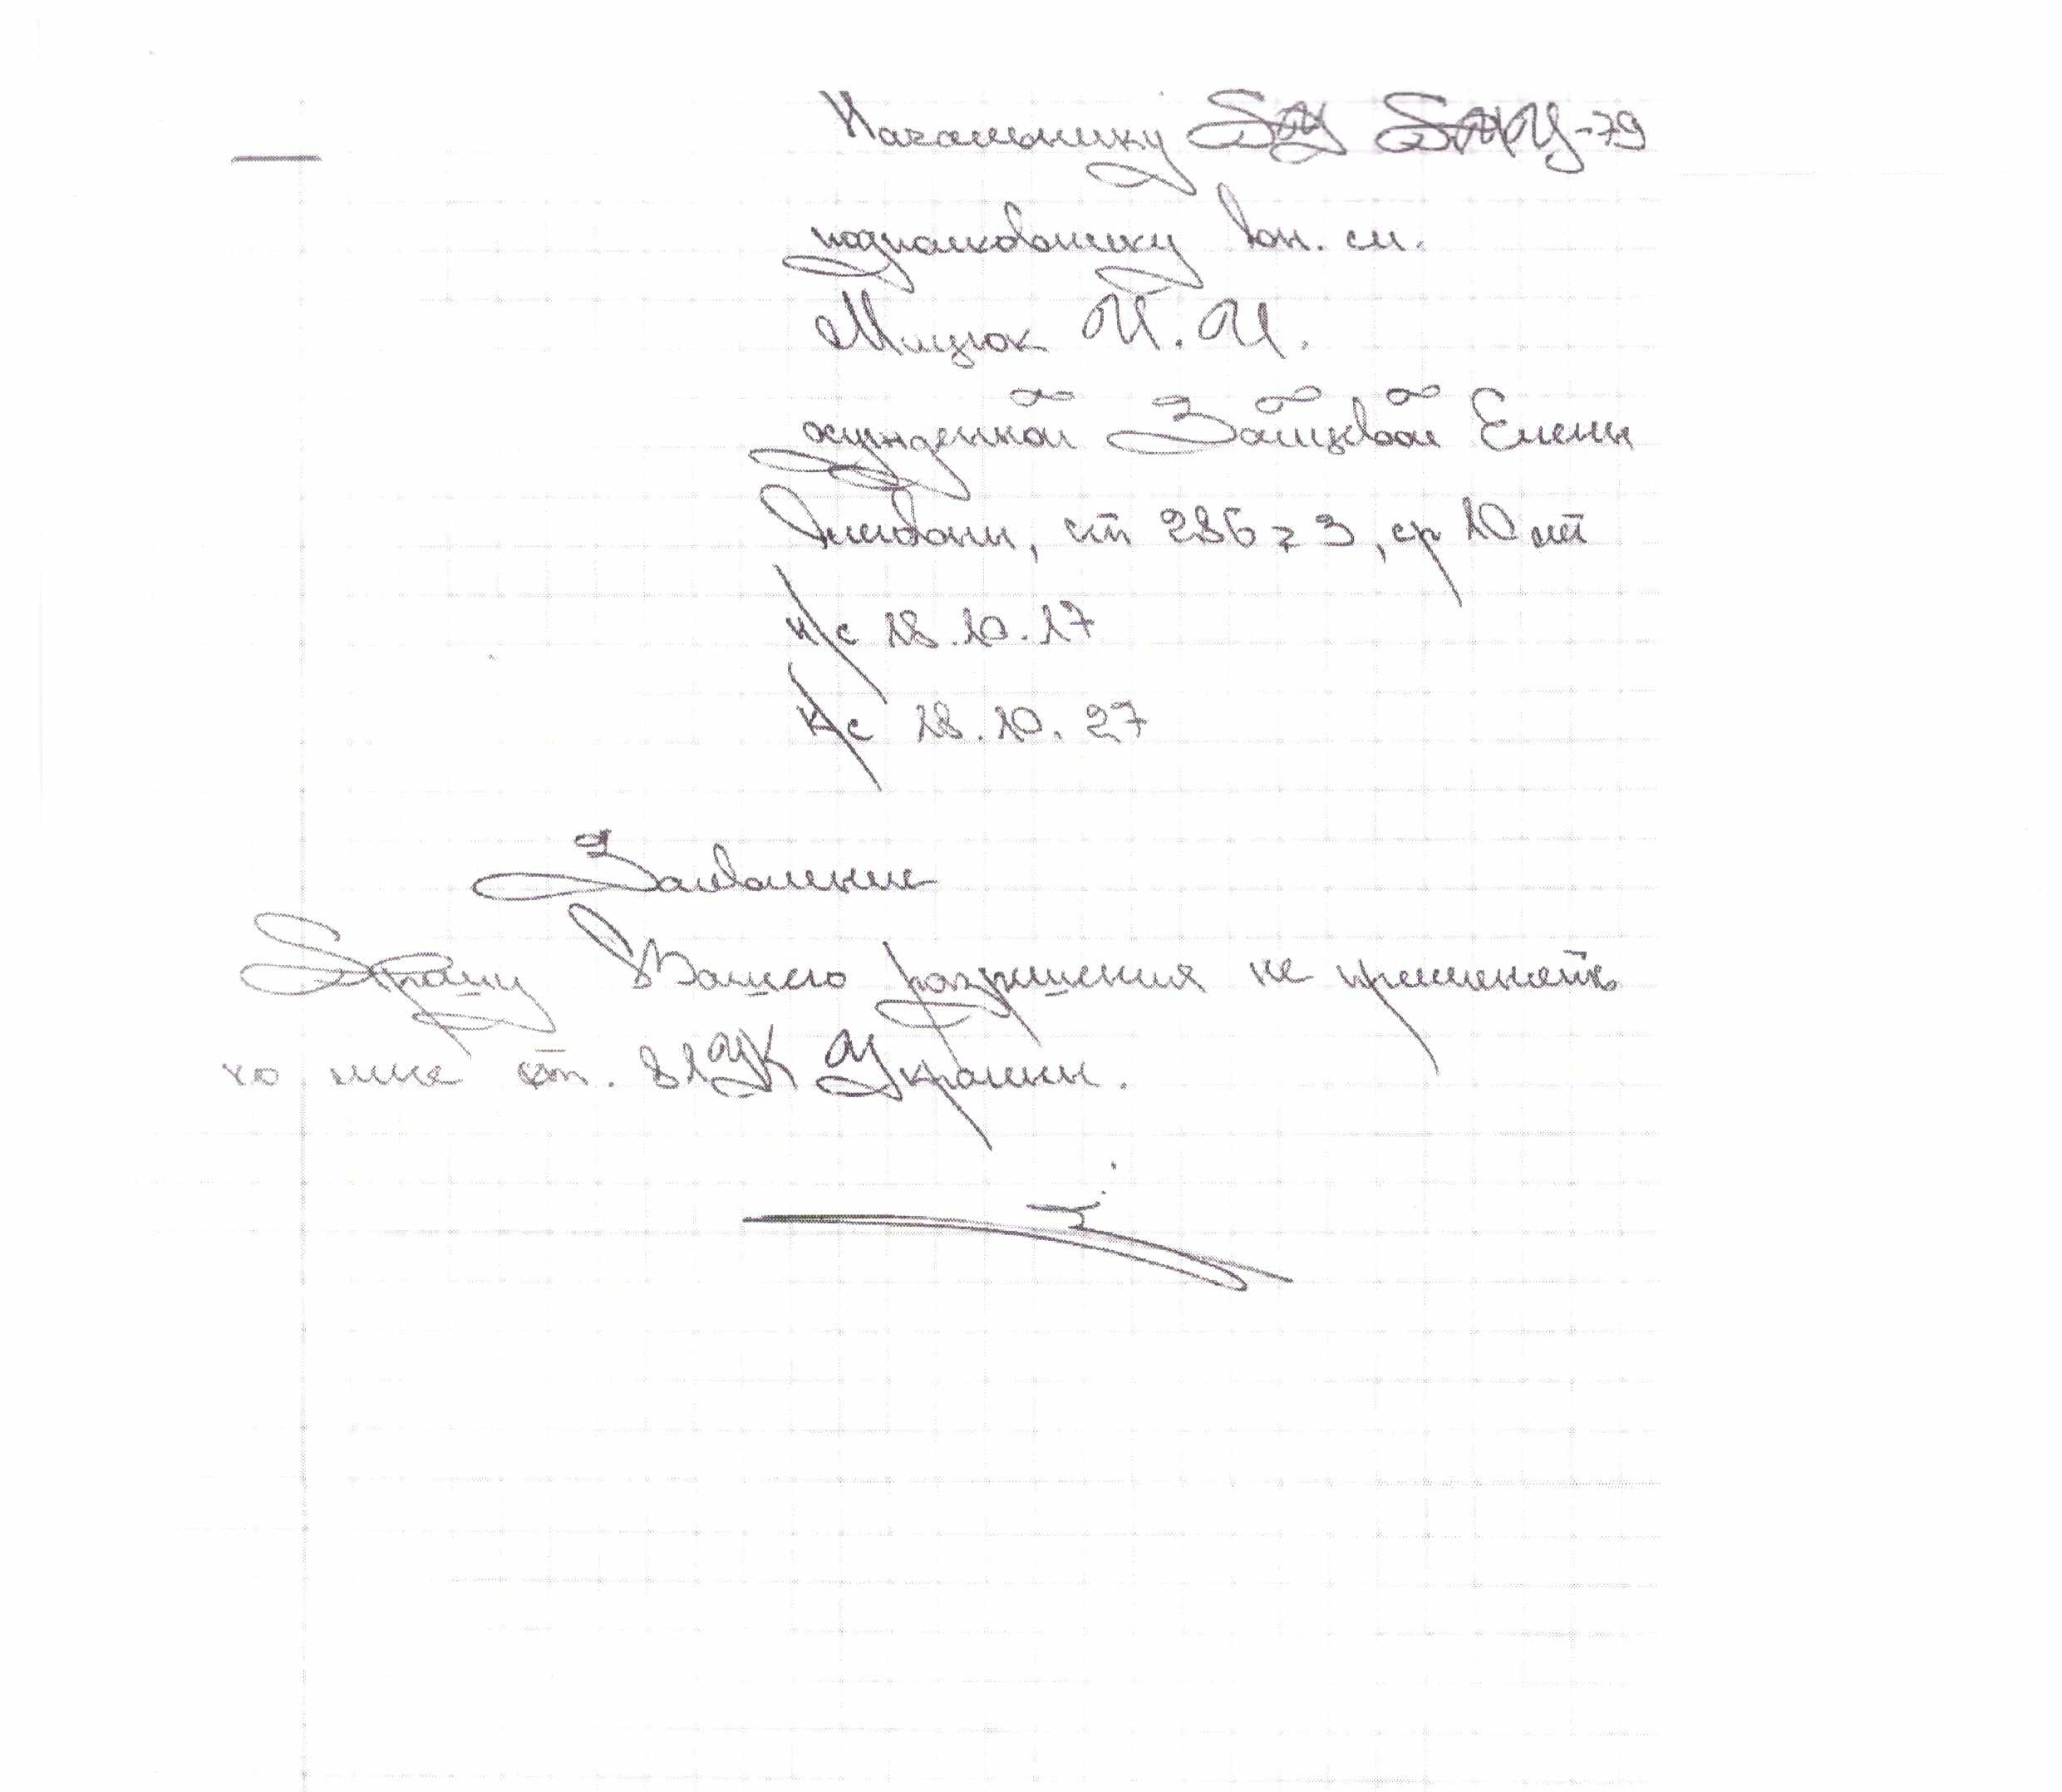 Начальнику ГУ ГПУ-79
подполковнику вн. сл.
Мицюк И. И.
осужденной Зайцевой Елены
ст 286 ч 3, ср 10 лет
н/с 18.10.17
к/с 18.10.27
Заявление
Прошу Вашего разрешения не применять
ко мне ст. 81 УК Украины.